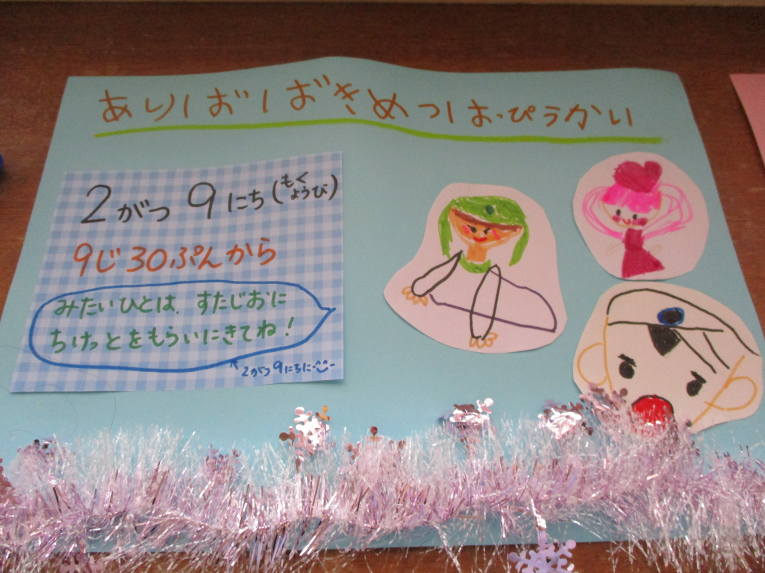 ありばばきめつはっぴうかい
2がつ9にち(もくようび)
9じ30ぷんから
みたいひとは、すたじおに
ちけっとをもらいにきてね!
2がつ9にちに